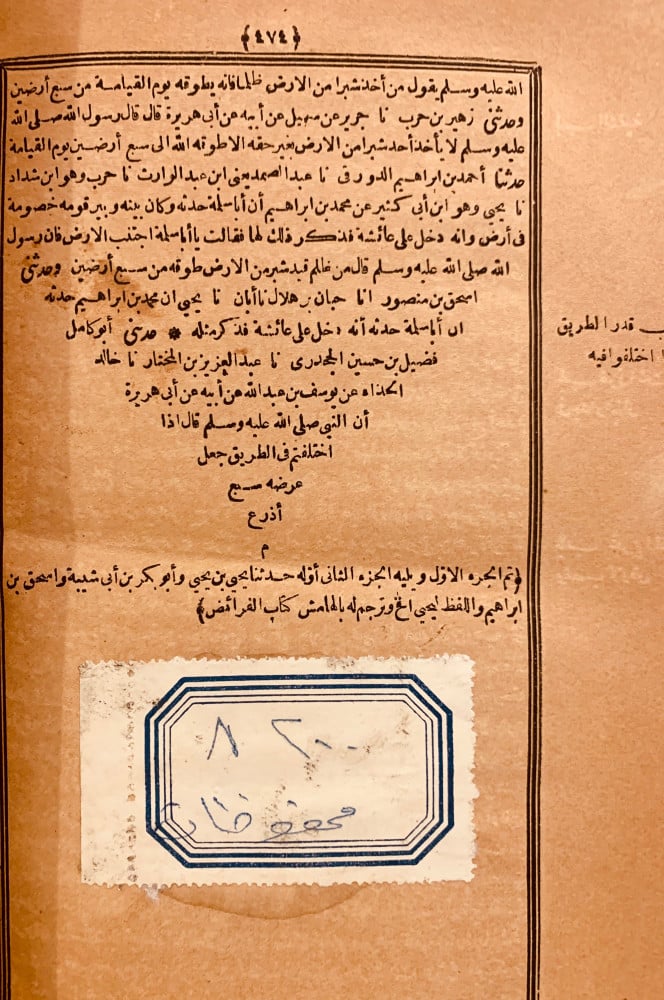 ﴿٤٧٤﴾
الله عليه وسلم يقول من أخذ شبرا من الارض ظلما فانه يطوقه يوم القيامة من سبع أرضين
وحدثنى زهير بن حرب نا جرير عن سهيل عن أبيه عن أبى هريرة قال قال رسول الله صلى الله
عليه وسلم لا يأخذ أحد شبرا من الارض بغير حقه الا طوقه الله الى سبع أرضين يوم القيامة
حدثنا أحمد بن ابراهيم الدورقى نا عبد الصمد يعنى ابن عبد الوارث نا حرب وهو ابن شداد
نا يحيى وهو ابن أبى كثير عن محمد بن ابراهيم أن أبا سلمة حدثه وكان بينه وبين قومه خصومة
فى أرض وانه دخل على عائشة فذكر ذلك لها فقالت يا أبا سلمة اجتنب الارض فان رسول
الله صلى الله عليه وسلم قال من ظلم قيد شبر من الارض طوقه من سبع أرضين وحدثنى
اسحق بن منصور انا حبان بن هلال نا أبان نا يحيى ان محمد بن ابراهيم حدثه
ان أبا سلمة حدثه أنه دخل على عائشة فذكر مثله * حدثنى أبو كامل
فضيل بن حسين الجحدرى نا عبد العزيز بن المختار نا خالد
الحذاء عن يوسف بن عبد الله عن أبيه عن أبى هريرة
أن النبى صلى الله عليه وسلم قال اذا
اختلفتم فى الطريق جعل
عرضه سبع
أذرع
م
﴿تم الجزء الاول ويليه الجزء الثانى أوله حدثنا يحيى بن يحيى وأبو بكر بن أبى شيبة واسحق بن
ابراهيم واللفظ ليحيى الخ وترجم له بالهامش كتاب الفرائض﴾
قدر الطريق
اختلفوا فيه
٢٠٠ ٨